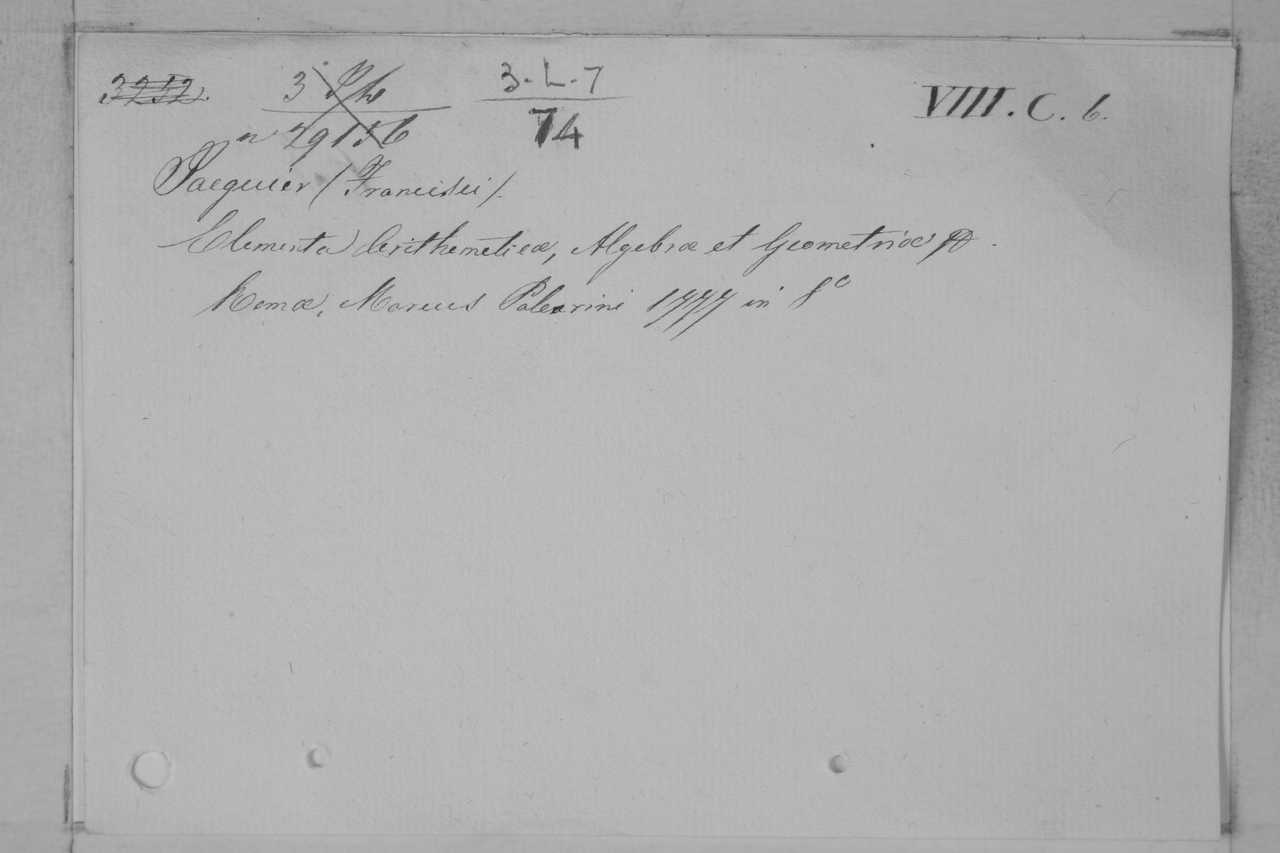 3252. 3 Ph 3-L-7 VIII. C. 6.
n 29156 74
Jacquier (Francisci).
Elementa Arithmeticæ, Algebræ et Geometriæ
Romæ, Marcus Palearini 1777 in 8º